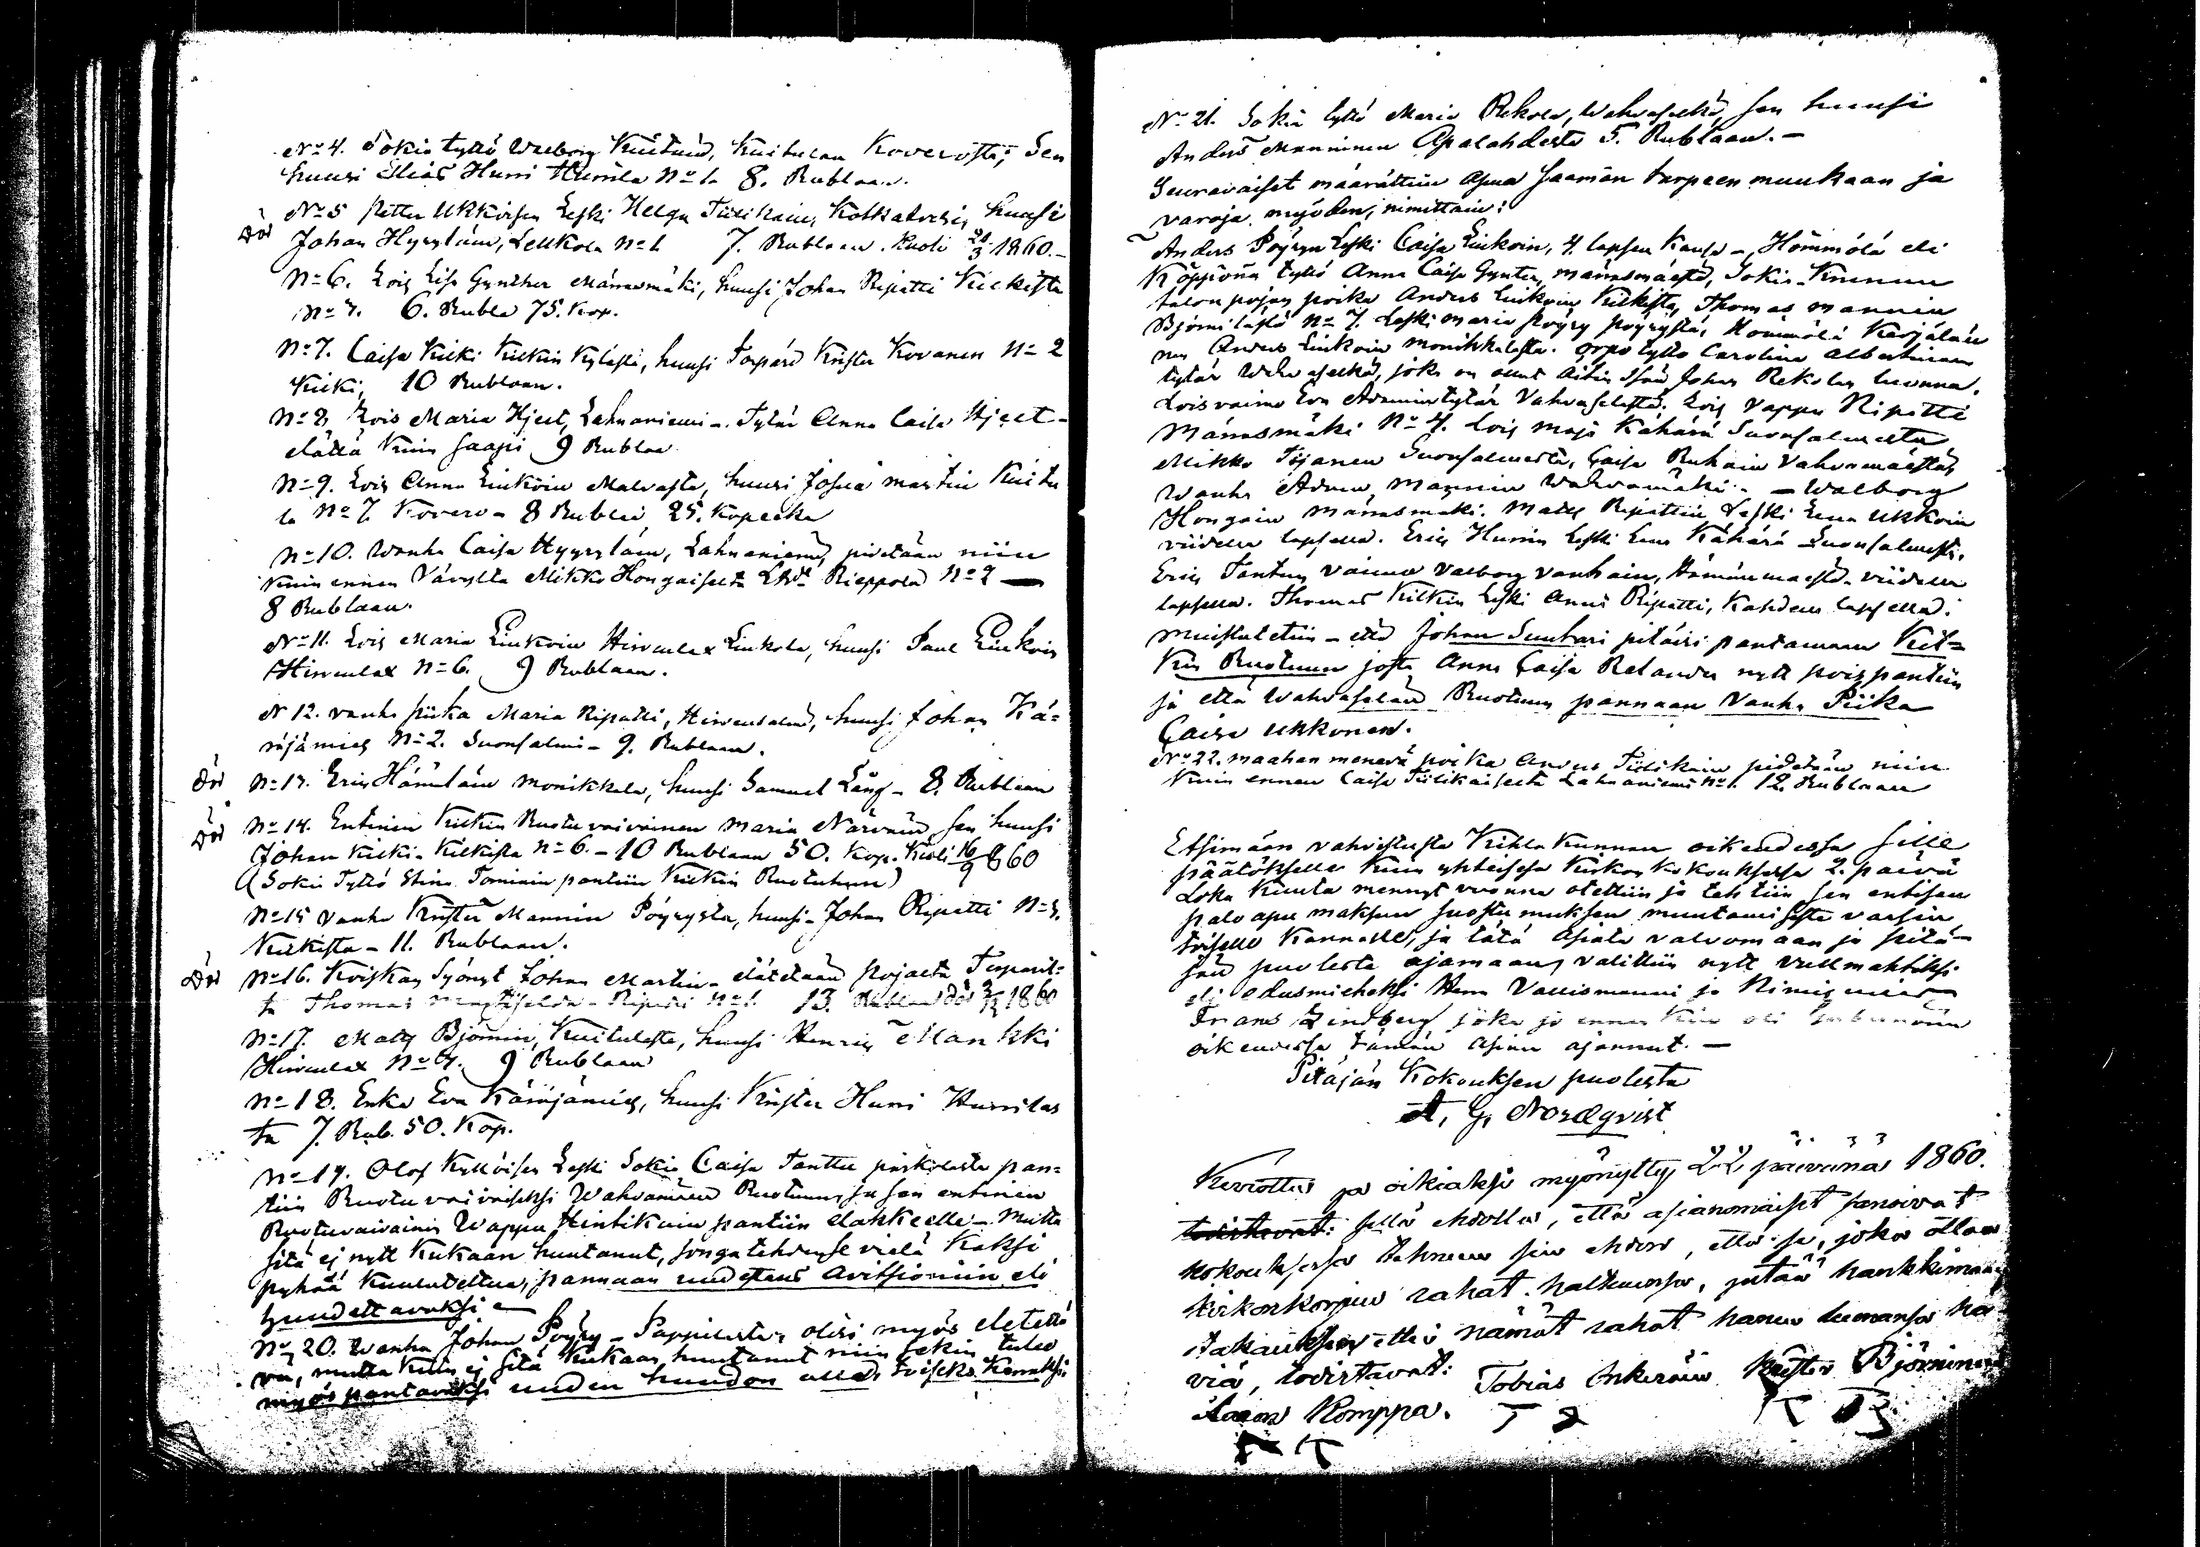 No 4. Sokia tyttö Walborg Kuitunen, Kuitulan Koverosta; Sen
huusi Elias Hurri Hurrila No 1. 8. Rublaan.
No 5 Petter Ukkoisen Leski Helga Tiilikain, Kolkatvesi, huusi
Död Johan Hyyryläin, Leukola No 1. 7. Rublaan. Kuoli 21/3 1860.
No 6. Lois Lisa Gynther Männmäki, huusi Johan Ripatti Kilkista
No 7. 6. Rubla 75. Kop.
No 7. Caisa Kilki Kilkin Kylästä, huusi Torpäri Krister Kovanen No 2
Kilki, 10 Rublaan.
No 8, Lois Maria Hjelt, Lahnaniemi - Tytär Anna Caisa Hjelt -
elättä Kuin saapi 9 Rublaa
No 9. Lois Anna Liukoin Malvasta, huusi Josua Martin Kuitu
la No 7. Kovero - 8 Rublaa, 25. Kopeekka
No 10. Wanha Caisa Hyyryläin, Lahnaniemi, pidetään niin
Kuin ennen Vävyltä Mikko Hongaiselta Rieppola No 2 —
8 Rublaan.
No 11. Lois Maria Liukoin Hirvenlax Liukola, huusi Paul Liukoin
Hirvenlax No 6. 9 Rublaan.
N 12. vanha piika Maria Ripatti, Hirvensalmi, huusi Johan Kä=
räjämies No 2. Suonsalmi - 9. Rublaan.
Död No 13. Eric Hämäläin Monikkala, huusi Samuel Läng - 8. Rublaan
Död No 14. Entinen Kilkin Ruotuvaivainen Maria Närväin, sen huusi
Johan Kilki - Kilkista No 6. - 10 Rublaan 50. Kop. Kuoli 16/9 860
(Sokia Tyttö Stina Tominin pantiin Kilkin Ruotuhun)
No 15 vanha Krister Mannin Pöyrystä, huusi - Johan Ripatti No 5.
Kilkista - 11. Rublaan.
Död No 16. Johan Martin - elätetään pojalta Torparil=
ta Thomas 13. Rublaa död 1860
No 17. Matts Björnin, Kuitulasta, huusi Henric Mankki
Hirvenlax No 4. 9 Rublaan
No 18. Enka Eva Käräjämies, huusi Krister Hurri Hurrilas
ta 7. Rub. 50. Kop.
No 19. Olof Kyllöisen Leski Sokia Caisa Tanttu pan=
tiin Ruotu vaivaiseksi Wahvamäen Ruotuun, ja sen entinen
Ruotuvaivainen Wappu Hintikain pantiin elakkeelle - Mutta
sitä ej nytt Kukaan huutanut, jonga tehden se vielä Kaksi
pyhää Kuulutettua, pannaan uudestans Avitsioniin eli
huudettavaksi
No 20. Wanha Johan Pöyry - Pappilasta, olisi myös eletettä
vä, mutta Kuin ej sitä Kukaan huutanut niin sekin tulee
myös pantavaksi uuden huudon alle, toiseks Kerraksi.
No 21. Sokia tyttö Maria Rekola, Wahvaselkä, sen huusi
Anders Manninen Apalahdesta 5. Rublaan. -
Seuravaiset määrättiin apua saaman tarpeen muukaan ja
varoja myöden, nimittäin:
Anders Pöyryn Leski Caisa Liukoin, 4. lapsen kansa - Hömmölä eli
Köppönä tyttö Anna Caisa Gynter, männmäestä, Sokia - Kruunun
talon pojan poika Anders Liukoin Kilkista, Thomas Mannin
Björnilästä No 7. Leski Maria Pöyry Pöyrystä, Hömmölä Karjalai
nen Anders Liukoin Monikkalasta. orpo tyttö Carolina Albertiinan
tytär Wahvaselkä, joka on ollut Äitin Isän Johan Rekolan luonna,
Lois vaimo Eva Adamintytär Vahvaselästä. Lois Vappu Ripatti
Männmäki No 4. Lois Maja Kähärä Suonsalmelta
Mikko Töjänen Suonsalmesta, Caisa Ruhain Vahvamäestä,
Wanha Adam Mannin Wahvamäki. - Walborg
Hongain Männmäki. Matts Ripattin Leski Lena Ukkoin
viidellä lapsella. Eric Hurrin Leski Lena Kähärä Suonsalmesta.
Eric Tantun vaimo Valborg Vanhain, Hämänmaestä viidellä
lapsella. Thomas Kilkin Leski Anna Ripatti, Kahden lapsella.
Muistutettiin - että Johan Suntari pitäisi pantamaan Kil=
Kin Ruotuun josta Anna Caisa Relander nytt pois pantiin
ja että Wahvaselän Ruotuun pannaan Vanha Piika
Caisa Ukkonen.
No 22. maahan menevä poika Anders Tiilikain pidetään niin
Kuin ennen Caisa Tiilikaiselta Lahnaniemi No 1. 12. Rublaan
Etsimään vahvistusta Kihla Kunnan oikeudessa sille
päätökselle Kuin yhteisessä Kirkon kokouksessa 2. päivä
Loka Kuuta mennyt vuonna otettiin ja tehtiin sen entisen
palo apu maksun suostumuksen muutamisesta varsin
toiselle kannalle, ja tätä Asiata valvomaan ja pitä-
jän puolesta ajamaan, valittiin nytt vullmahtiksi
eli edusmieheksi Herra Vallesmanni ja Nimismies
Frans Lindberg, joka jo ennen Kin oli
oikeudessa tämän asian ajannut. —
Pitäjän Kokouksen puolesta
A. G. Nordqvist
Keviättus ja oikiaksi myönytty 22 päivänä 1860.
todistavat: sillä ehdolla, että asianomaiset sanoivat
kokouksessa tehneen sen ehdon, että se, joka ottaa
kirkonkorjuu rahat haltuunsa, pitää hankkimaan
takauksen ettei nämät rahat hanen luonansa hä
viä, todistavat: Tobias Inkeröin Krister Björninen
Aaron Komppa. T I K B
A K